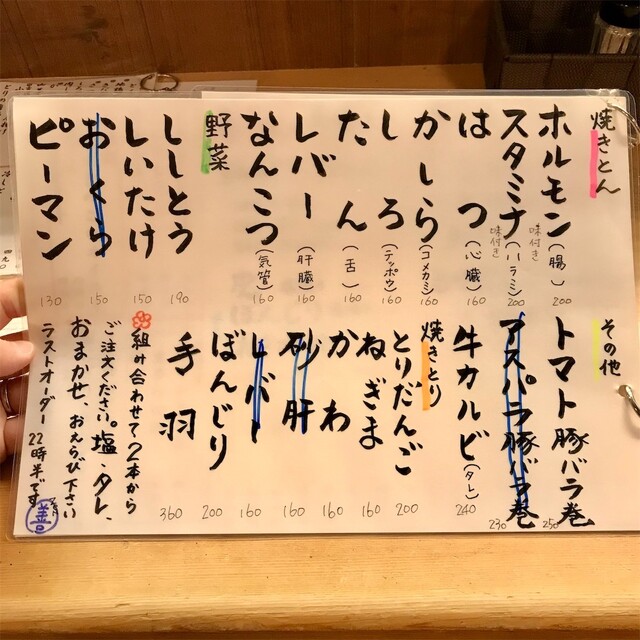 焼きとん
ホルモン(腸) 味付き 200
スタミナ(ハラミ) 味付き 200
はつ(心臓) 160
かしら(コメカミ) 160
しろ(テッポウ) 160
たん(舌) 160
レバー(肝臓) 160
なんこつ(気管) 160
野菜
ししとう 190
しいたけ 150
おくら 150
ピーマン 130
その他
トマト豚バラ巻 250
アスパラ豚バラ巻 230
牛カルビ(タレ) 240
焼きとり
とりだんご 200
ねぎま 160
かわ 160
砂肝 160
レバー 160
ぼんじり 200
手羽 360
組み合わせて2本から
ご注文ください。塩・タレ、
おまかせ、おえらび下さい
ラストオーダー 22時半です。
善